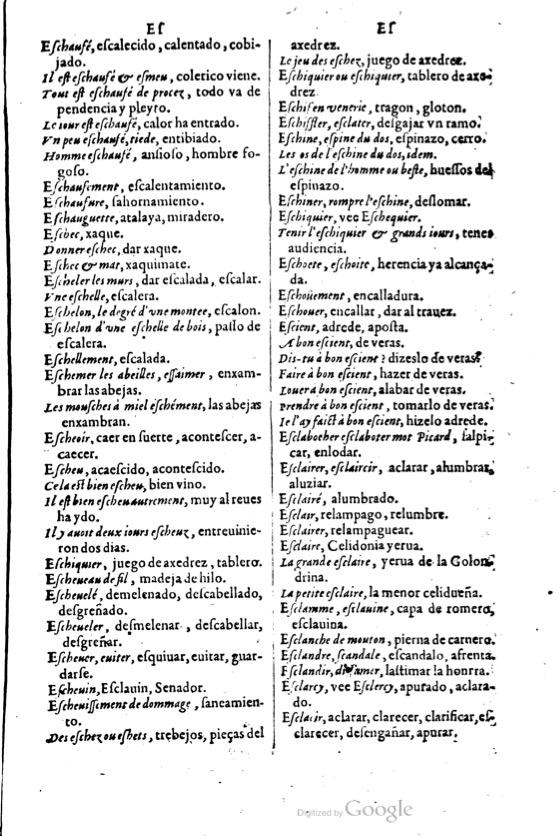 Eſ
Eſchaufé, eſcalecido, calentado, cobi-
jado.
Il eſt eſchaufé & eſmeu, colerico viene.
Tout eſt eſchaufé de procez, todo va de
pendencia y pleyto.
Le iour eſt eſchaufé, calor ha entrado.
Vn peu eſchaufé, tiede, entibiado.
Homme eſchaufé, anſioſo, hombre fo-
goſo.
Eſchaufement, eſcalentamiento.
Eſchaufure, ſahornamiento.
Eſchauguette, atalaya, miradero.
Eſchec, xaque.
Donner eſchec, dar xaque.
Eſchec & mat, xaquimate.
Eſcheler les murs, dar eſcalada, eſcalar.
Vne eſchelle, eſcalera.
Eſchelon, le degré d'vne montee, eſcalon.
Eſchelon d'vne eſchelle de bois, paſſo de
eſcalera.
Eſchellement, eſcalada.
Eſchemer les abeilles, eſſaimer, enxam-
brar las abejas.
Les mouſches à miel eſchément, las abejas
enxambran.
Eſcheoir, caer en ſuerte, aconteſcer, a-
caecer.
Eſcheu, acaeſcido, aconteſcido.
Cela eſt bien eſcheu, bien vino.
Il eſt bien eſcheu autrement, muy al reues
ha ydo.
Il y auoit deux iours eſcheuz, entreuinie-
ron dos dias.
Eſchiquier, juego de axedrez, tablero.
Eſcheueau de fil, madeja de hilo.
Eſcheuelé, demelenado, deſcabellado,
deſgreñado.
Eſcheueler, deſmelenar, deſcabellar,
deſgreñar.
Eſcheuer, euiter, eſquiuar, euitar, guar-
darſe.
Eſcheuin, Eſclauin, Senador.
Eſcheuiſſement de dommage, ſaneamien-
to.
Des eſchez ou eſhets, trebejos, pieças del
Eſ
axedrez.
Le jeu des eſchez, juego de axedrez.
Eſchiquier ou eſchiquier, tablero de axe-
drez
Eſchiſ en venerie, tragon, gloton.
Eſchiſſler, eſclater, deſgajar vn ramo.
Eſchine, eſpine du dos, eſpinazo, cerro.
Les os de l'eſchine du dos, idem.
L'eſchine de l'homme ou beſte, hueſſos del
eſpinazo.
Eſchiner, rompre l'eſchine, deſlomar.
Eſchiquier, vee Eſchequier.
Tenir l'eſchiquier & grands iours, tener
audiencia.
Eſchoete, eſchoite, herencia ya alcança-
da.
Eſchoüement, encalladura.
Eſchouer, encallar, dar al trauez.
Eſcient, adrede, apoſta.
A bon eſcient, de veras.
Dis-tu à bon eſcient? dizeslo de veras?
Faire à bon eſcient, hazer de veras.
Louer à bon eſcient, alabar de veras.
Prendre à bon eſcient, tomarlo de veras.
Ie l'ay faict à bon eſcient, hizelo adrede.
Eſclabocher eſclaboter mot Picard, ſalpi-
car, enlodar.
Eſclairer, eſclaircir, aclarar, alumbrar,
aluziar.
Eſclairé, alumbrado.
Eſclair, relampago, relumbre.
Eſclairer, relampaguear.
Eſclaire, Celidonia yerua.
La grande eſclaire, yerua de la Golon
drina.
La petite eſclaire, la menor celidueña.
Eſclamme, eſclauine, capa de romero,
eſclauina.
Eſclanche de mouton, pierna de carnero.
Eſclandre, ſcandale, eſcandalo, afrenta.
Eſclandir, diffamer, laſtimar la honrra.
Eſclarcy, vee Eſclercy, apurado, aclara-
do.
Eſclarcir, aclarar, clarecer, clarificar, eſ-
clarecer, deſengañar, apurar.
Digitized by Google